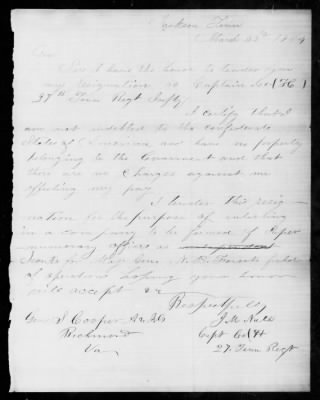 Jackson Tenn
March 23rd 1864
Sir
Sir I have the honor to tender you
my resignation as Captain Co (H)
27th Tenn Regt Infty
I certify that I
am not indebted to the confederate
States of America and have no property
belonging to the Government and that
there are no Charges against me
affecting my pay
I tender this resig-
nation for the purpose of enlisting
in a company to be formed of Super
numerary officers as independent
Scouts for Maj Genl N. B. Forrests
of operations hoping your honor
will accept &c
Respectfully
Gen S Cooper A & IG
Richmond
Va
J M
Capt Co (H
27 Tenn Regt